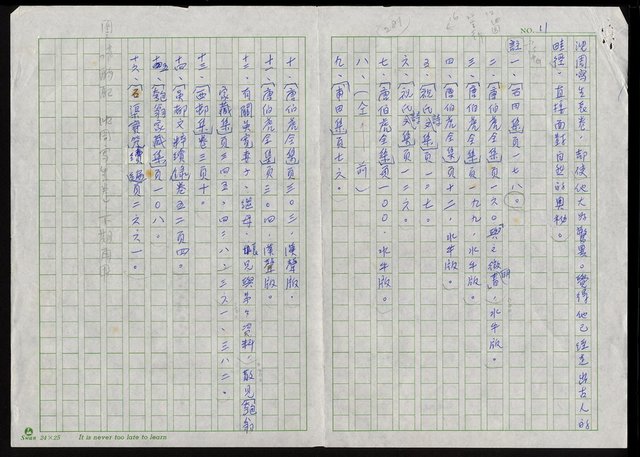 NO. 41
沈周寫生長卷,却使他大為驚異。覺得他已經走出古人的
畦徑,直接面對自然的奧秘。
註一、「石田集」頁一七八。
二、「唐伯虎全集」頁一六〇與文徵明書,水牛版。
三、「唐伯虎全集」頁一九九,水牛版。
四、「唐伯虎全集」頁十二,水牛版。
五、「祝氏文集」頁一〇七。
六、「祝氏文集」頁一三六。
七、「唐伯虎全集」頁一〇〇,水牛版。
八、「仝 前」
九、「甫田集」頁七六。
(281)
十、「唐伯虎全集」頁三〇三,漢聲版。
十一、「唐伯虎全集」頁三〇四,漢聲版。
十二、有關吳寬妻子、繼母、兄與弟子資料,散見「匏翁
家藏集」頁三四五、四三八、三六一、三八二。
十三、「西都集」卷三頁十。
十四、「吳都文粹續集」卷五二頁四。
十五、「匏翁家藏集」頁一〇八。
十六、「石渠寶笈續編」頁二六六一。
Swan 24×25 It is never too late to learn